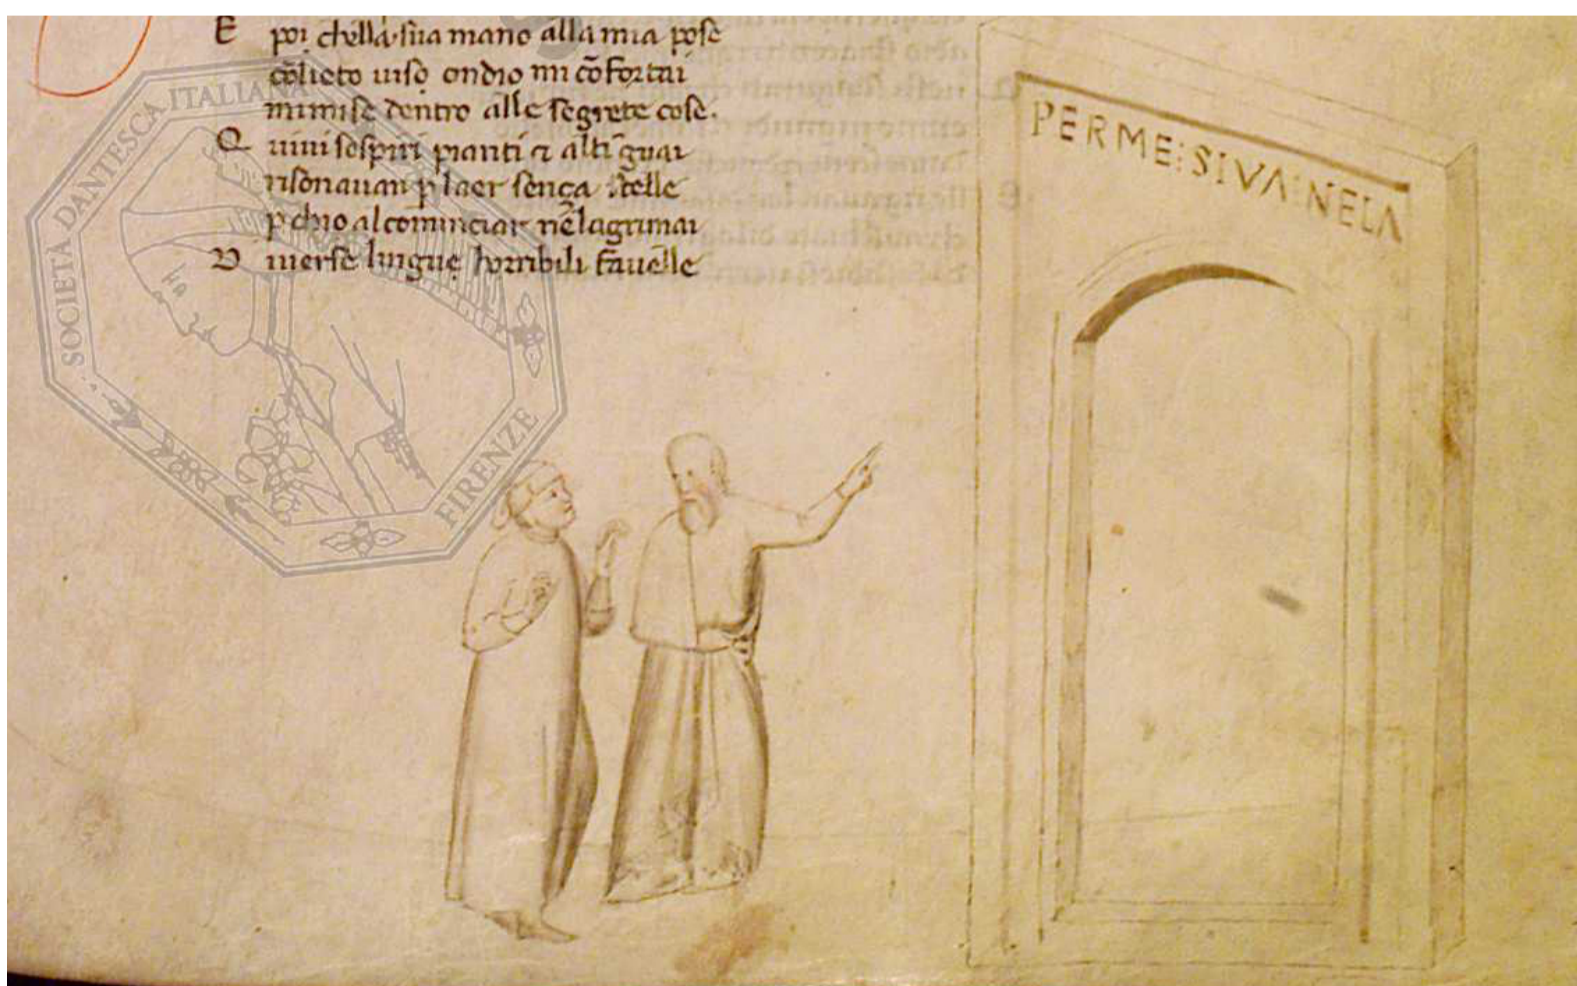 E poi chella sua mano alla mia pose
cō lieto uiso ondio mi cōfortai
mi mise dentro alle segrete cose.
Q uiui sospiri pianti ⁊ alti guai
risonauan p laer sença stelle
p chio al cominciar nē lagrimai
D iuerse lingue horribili fauelle
PERME:SIVA:NELA
SOCIETÀ DANTESCA ITALIANA
FIRENZE